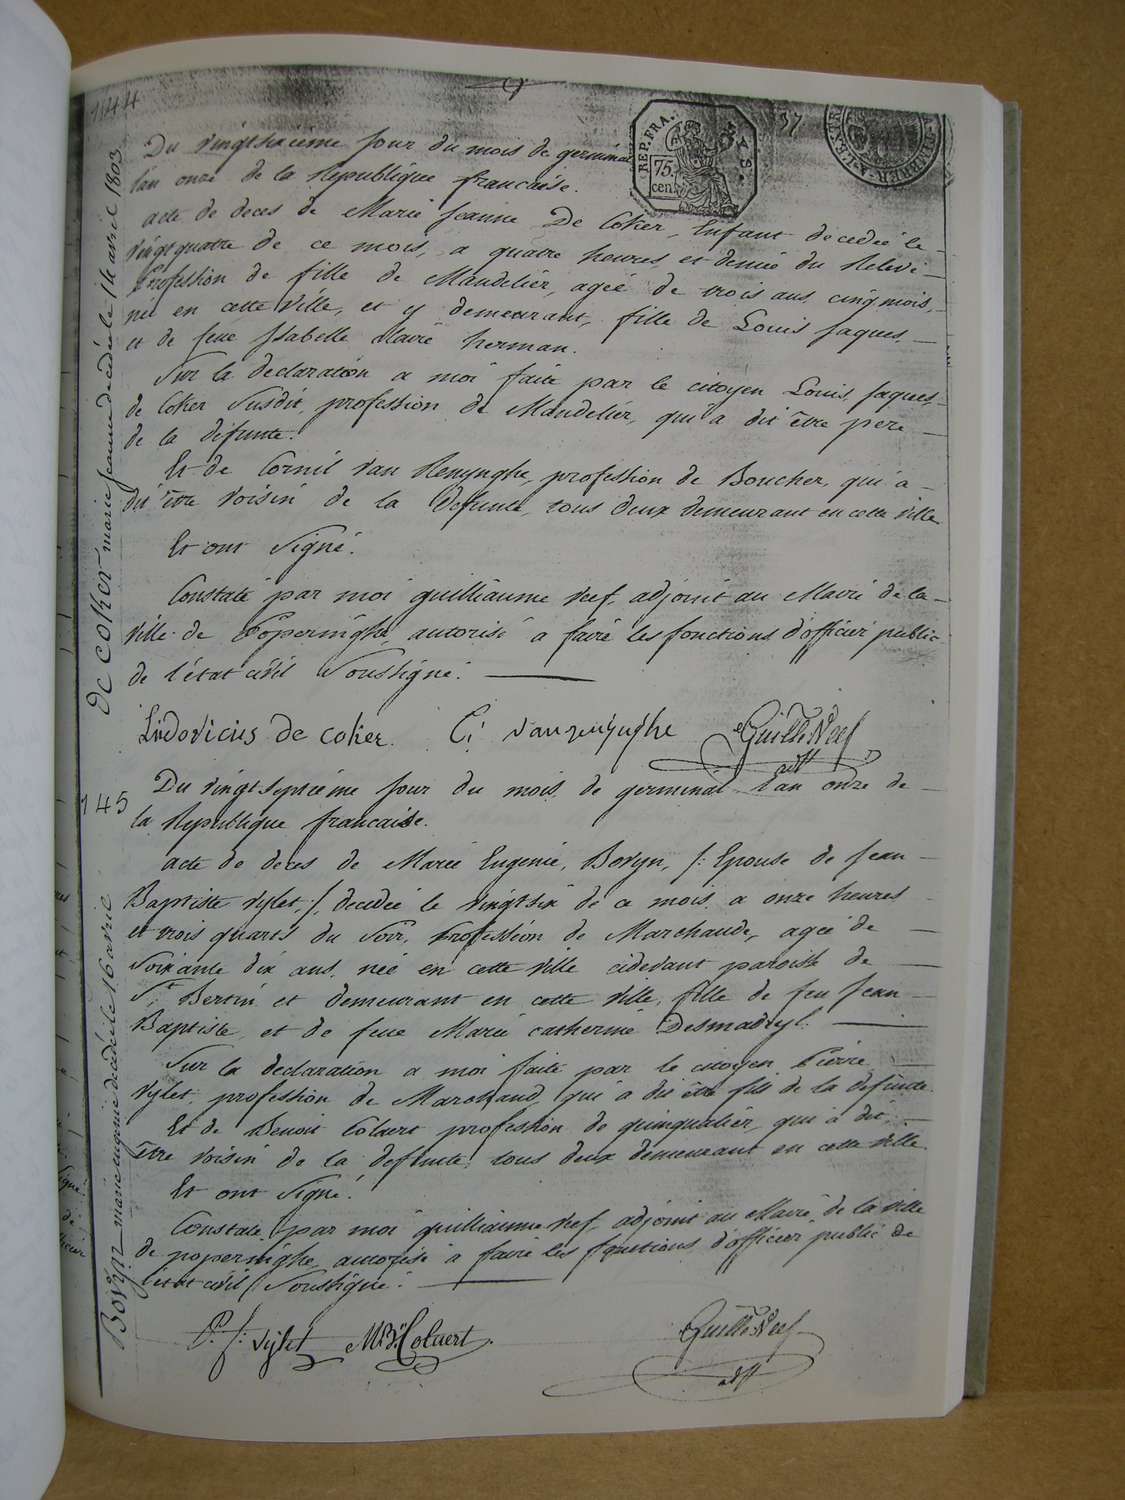 144
37
REP. FRA.
75.
cen.
De Coker marie jeanne decedée le 14 avril 1803
Du vingtsixième jour du mois de germinal
l'an onze de la Republique francaise.
acte de deces de Marie Jeanne De Coker, Enfant decedée le
vingtquatre de ce mois, a quatre heures et demie du Relevé
Profession de fille de Mandelier, agée de trois ans cinq mois,
né en cette Ville, et y demeurant, fille de Louis Jaques,
et de feue Isabelle Claire herman.
Sur la declaration a moi faite par le citoyen Louis Jaques
de Coker Susdit, profession de Mandelier, qui a dit être pere
de la défunte.
Et de Cornil van Renynghe, profession de Boucher, qui a
dit être Voisin de la Defunte, tous deux demeurant en cette Ville
Et ont Signé.
Constaté par moi guilliaume Neef, adjoint au Maire de la
Ville de Poperinghe, autorisé a faire les fonctions d'officier public
de l'état civil Soussigné.
Ludovicus de coker. C: vanrenynghe Guill: Neef
adjt
145
Bovyn marie eugenie decédée le 16 avril
Du vingtseptième jour du mois de germinal l'an onze de
la Republique francaise.
acte de deces de Marie Eugenie, Bovyn, /: Epouse de Jean
Baptiste Sylet, /, decedée le vingtsix de ce mois a onze heures
et trois quarts du Soir, Profession de Marchande, agée de
Soixante dix ans, née en cette Ville cidevant paroisse de
St. Bertin et demeurant en cette Ville, fille de feu Jean
Baptiste, et de feue Marie catherine Desmadryl.
Sur la declaration a moi faite par le citoyen Pierre
Sylet, profession de Marchand, qui a dit être fils de la defunte.
Et de Benoit Colaert profession de quinqualier, qui a dit
être voisin de la defunte, tous deux demeurant en cette Ville
Et ont Signé.
Constaté par moi guilliaume Neef, adjoint au Maire de la ville
de poperinghe, autorisé a faire les fonctions d'officier public de
l'état civil Soussigné.
P. J: Sylet M: B: Colaert. Guill: Neef
adjt